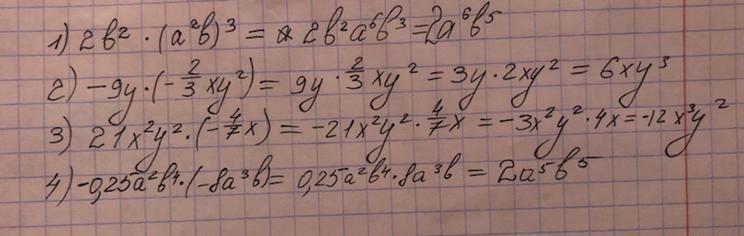 1) 2b² · (a²b)³ = 2b²a⁶b³ = 2a⁶b⁵
2) -9y · (-2/3 xy²) = 9y · 2/3 xy² = 3y · 2xy² = 6xy³
3) 21x²y² · (-4/7 x) = -21x²y² · 4/7 x = -3x²y² · 4x = -12x³y²
4) -0,25a²b⁴ · (-8a³b) = 0,25a²b⁴ · 8a³b = 2a⁵b⁵